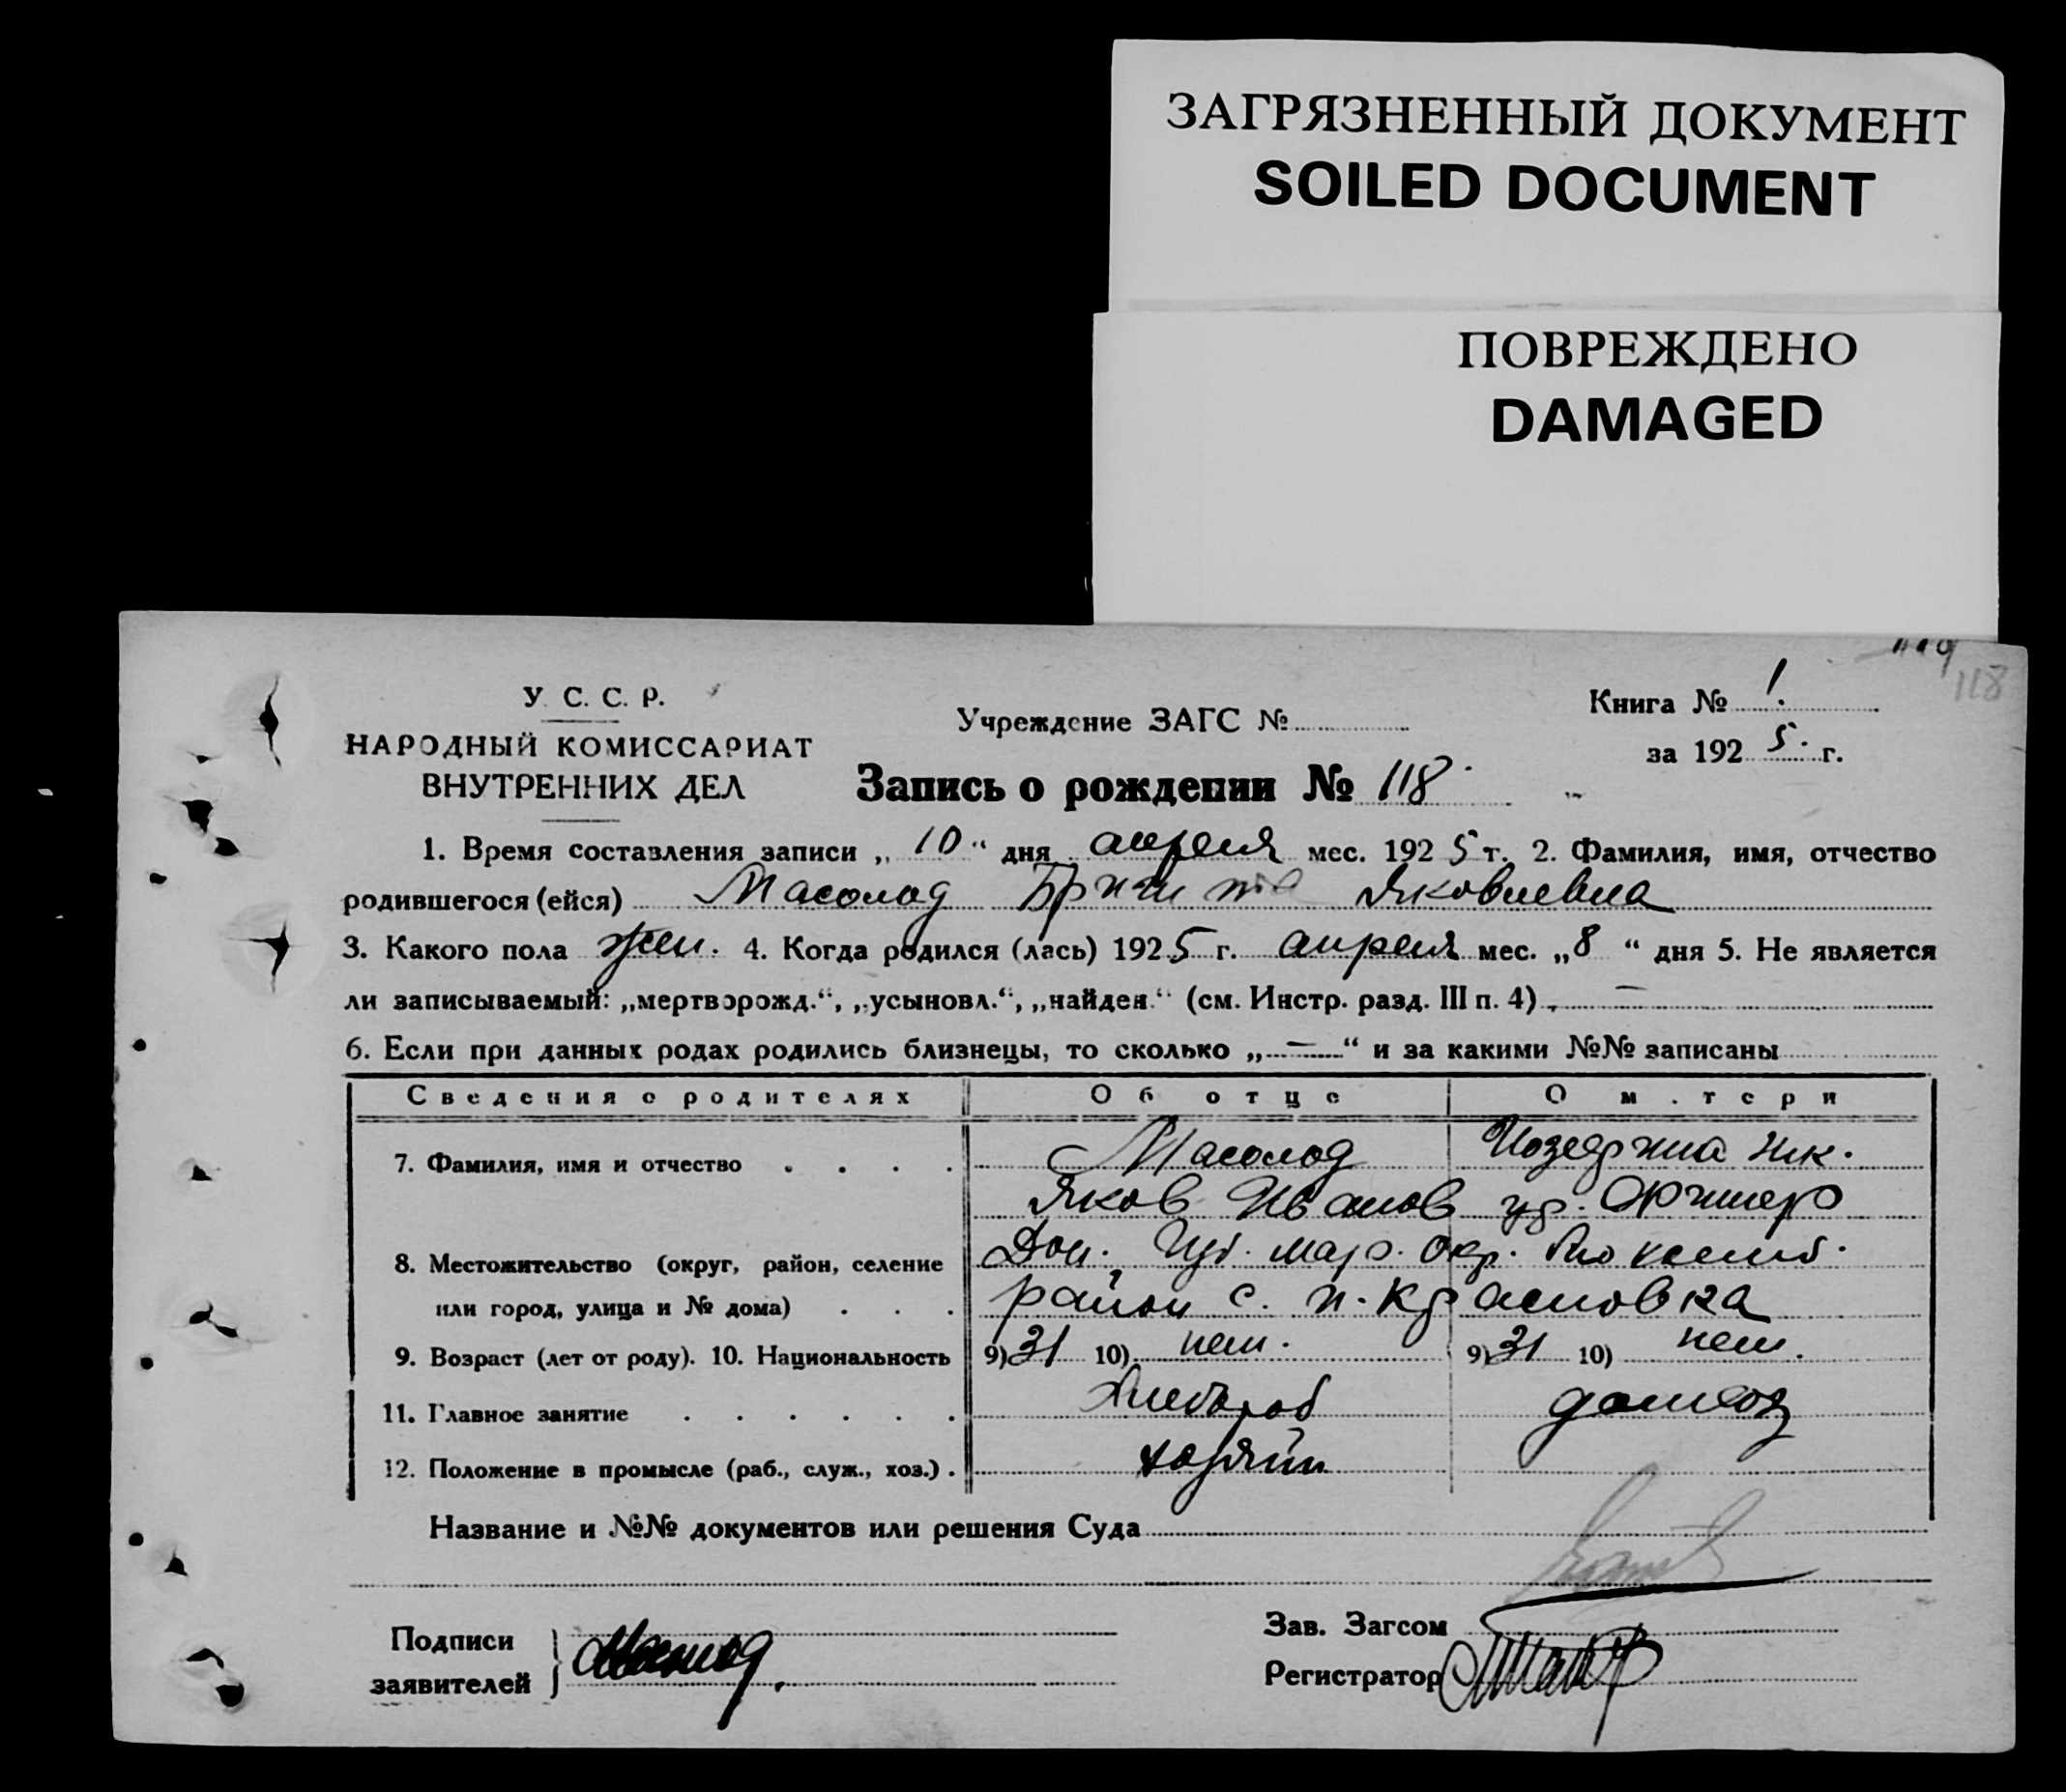 ЗАГРЯЗНЕННЫЙ ДОКУМЕНТ
SOILED DOCUMENT
ПОВРЕЖДЕНО
DAMAGED
119
118
У. С. С. Р.
НАРОДНЫЙ КОМИССАРИАТ
ВНУТРЕННИХ ДЕЛ
Учреждение ЗАГС №
Книга № 1.
за 1925. г.
Запись о рождении № 118
1. Время составления записи „ 10 “ дня апреля мес. 1925 г. 2. Фамилия, имя, отчество
родившегося (ейся) Масолод Яковлевна
3. Какого пола жен. 4. Когда родился (лась) 1925 г. апреля мес. „8 “ дня 5. Не является
ли записываемый: „мертворожд.“, „усыновл.“, „найден.“ (см. Инстр. разд. III п. 4) —
6. Если при данных родах родились близнецы, то сколько „—“ и за какими №№ записаны
Сведения о родителях Об отце О м.тери
7. Фамилия, имя и отчество Масолод
Яков Иванов ур.
8. Местожительство (округ, район, селение Дон. Губ. Мар. Окр.
или город, улица и № дома) район с. н. Красновка
9. Возраст (лет от роду). 10. Национальность 9) 31 10) нем. 9) 31 10) нем.
11. Главное занятие Хлебороб домхоз
12. Положение в промысле (раб., служ., хоз.) хозяин
Название и №№ документов или решения Суда
Подписи
заявителей
Масолод
Зав. Загсом
Регистратор